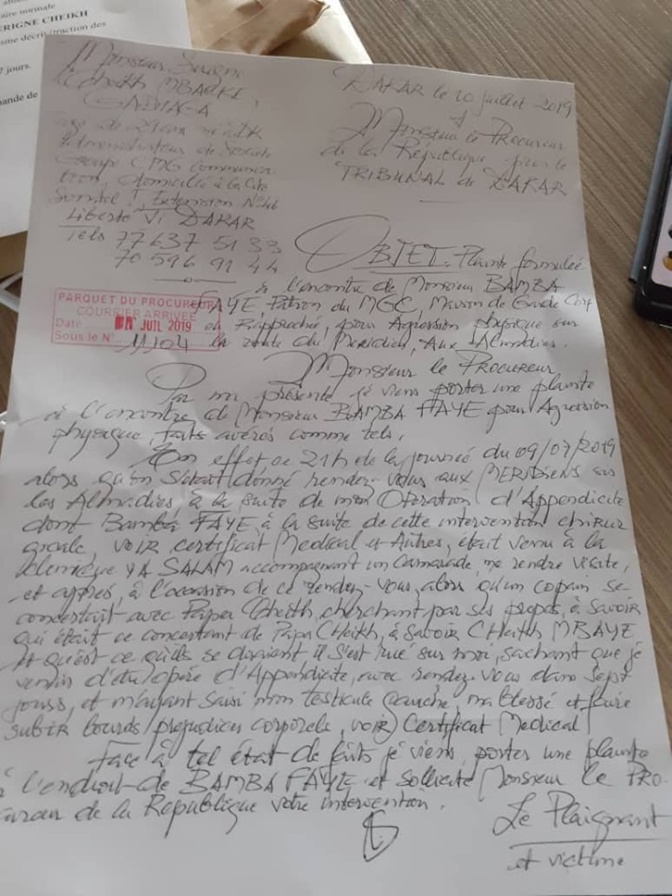 aire normale
ERIGNE CHEIKH
7 jours.
Monsieur
Cheikh MBACKE
GADIAGA
DAKAR le 10 juillet 2019
à
Monsieur le Procureur
de la République près le
TRIBUNAL de DAKAR
Groupe CMG
domicilié à la Cité
Extension
Liberté VI DAKAR
Tels 77 637 51 33
70 596 91 44
OBJET: Plainte formulée
à l'encontre de Monsieur BAMBA
FAYE Patron du MGC, Maison de Garde
et Rapprochée, pour Agression physique sur
la route du Meridien, Aux Almadies.
PARQUET DU PROCUREUR
COURRIER ARRIVEE
Date JUIL 2019
Sous le N° 11104
Monsieur le Procureur
Par ma présente je viens porter une plainte
à l'encontre de Monsieur BAMBA FAYE pour Agression
physique, faits avérés comme tels.
En effet ce 21h de la journée du 09/07/2019
alors qu'on s'était donné rendez-vous aux MERIDIENS sur
les Almadies, à la suite de mon Operation d'Appendicite
dont Bamba FAYE, à la suite de cette intervention chirur
gicale, voir certificat Medical et Autres, était venu à la
clinique YA SALAM accompagnant un Camarade me rendre visite,
et après, à l'occasion de ce rendez-vous, alors qu'un copain se
concertait avec Papa Cheikh, cherchant par ses propos, à savoir
qui était ce concertant de Papa Cheikh, à savoir CHeikh MBAYE
et qu'est ce qu'ils se disaient il s'est rué sur moi, sachant que je
venais d'être opéré d'Appendicite, avec rendez-vous dans sept
jours, et m'ayant saisi mon testicule gauche, m'a blessé et faire
subir lourds préjudices corporels, voir Certificat Medical
Face à tel état de faits je viens, porter une plainte
à l'endroit de BAMBA FAYE et sollicite Monsieur le PRO-
cureur de la République votre intervention.
Le Plaignant
et victime